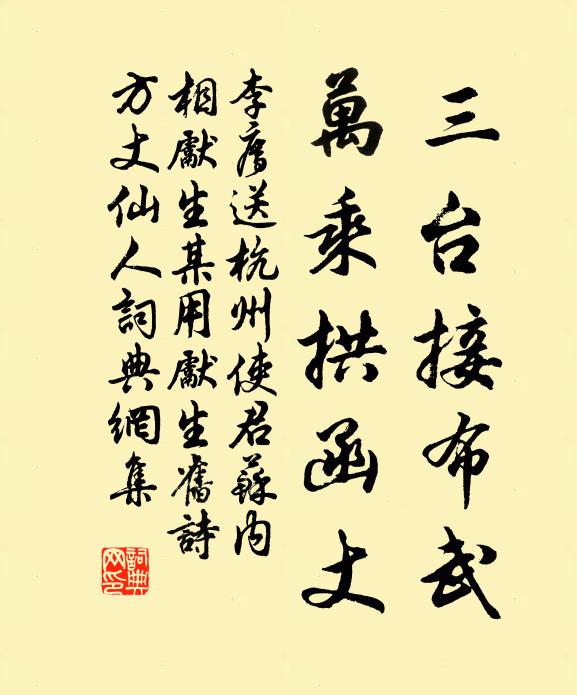 三台接布武
萬乘拱函丈
李廌送杭州使君蘇內
相獻生某用獻生舊詩
方丈仙人詞典網集
詞典网印